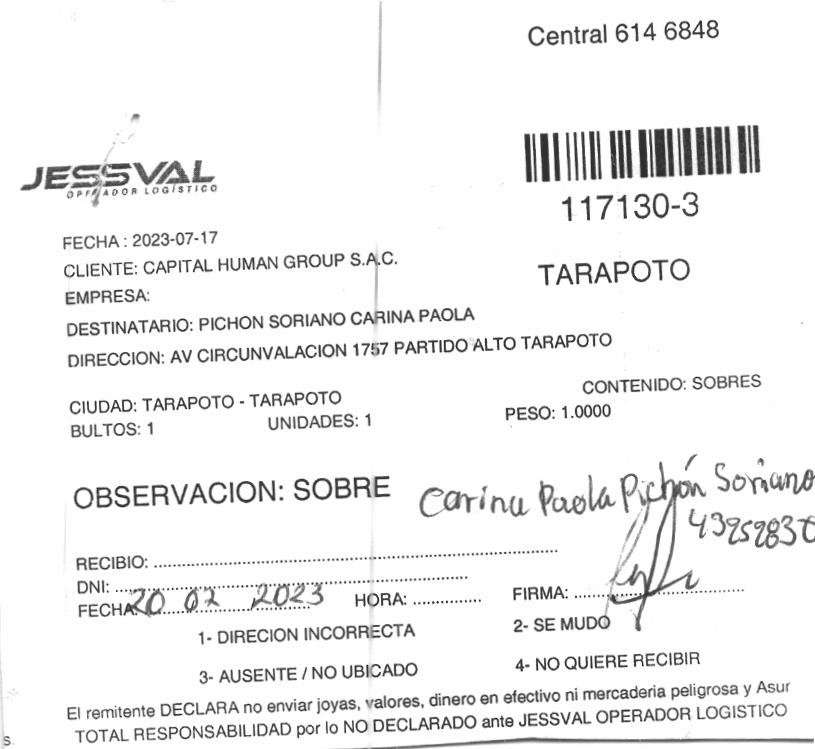 Central 614 6848
JESSVAL
OPERADOR LOGÍSTICO
117130-3
FECHA : 2023-07-17
CLIENTE: CAPITAL HUMAN GROUP S.A.C.
TARAPOTO
EMPRESA:
DESTINATARIO: PICHON SORIANO CARINA PAOLA
DIRECCION: AV CIRCUNVALACION 1757 PARTIDO ALTO TARAPOTO
CIUDAD: TARAPOTO - TARAPOTO
CONTENIDO: SOBRES
BULTOS: 1 UNIDADES: 1 PESO: 1.0000
OBSERVACION: SOBRE
Carina Paola Pichón Soriano
RECIBIO:
DNI:
FECHA: 20 07 2023 HORA: FIRMA:
1- DIRECION INCORRECTA 2- SE MUDO
3- AUSENTE / NO UBICADO 4- NO QUIERE RECIBIR
El remitente DECLARA no enviar joyas, valores, dinero en efectivo ni mercaderia peligrosa y Asur
TOTAL RESPONSABILIDAD por lo NO DECLARADO ante JESSVAL OPERADOR LOGISTICO
s.